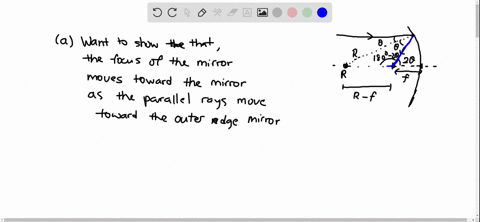 (a) Want to show the that,
the focus of the mirror
moves toward the mirror
as the parallel rays move
toward the outer edge mirror
θ
θ
R
180-2θ
2θ
R
f
R-f